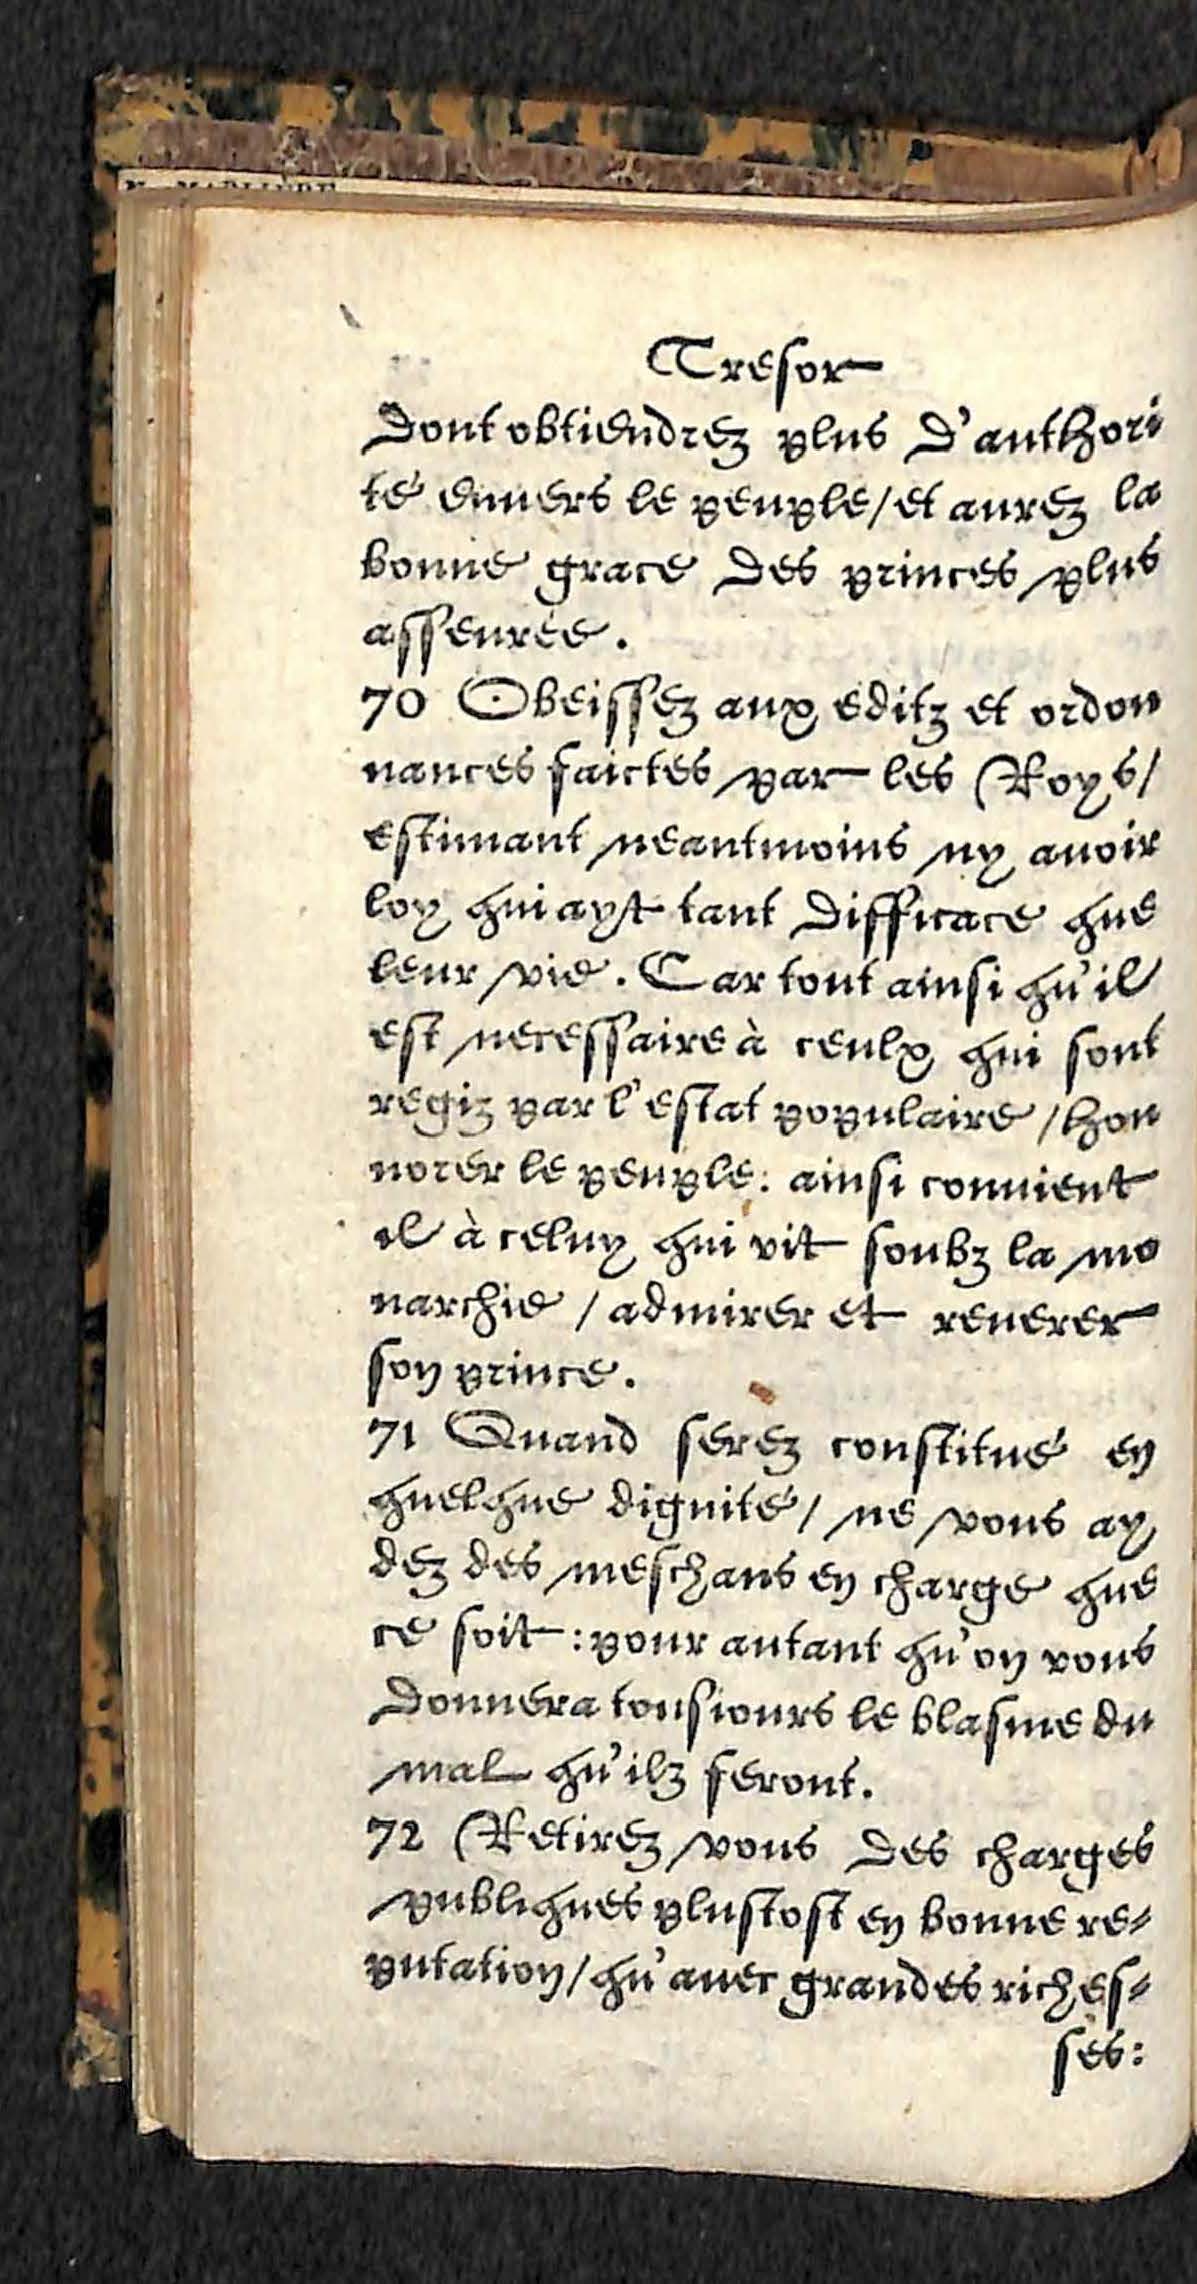 Tresor
Dont obtiendrez plus d'authori
té enuers le peuple / et aurez la
bonne grace des princes plus
asseurée.
70 Obeissez aux editz et ordon
nances faictes par les Roys /
estimant neantmoins ny auoir
loy qui ayt tant difficace que
leur vie. Car tout ainsi qu'il
est necessaire à ceulx qui sont
regiz par l'estat populaire / hon
norer le peuple: ainsi conuient
il à celuy qui vit soubz la mo
narchie / admirer et reuerer
son prince.
71 Quand serez constitué en
quelque dignité / ne vous ay
dez des meschans en charge que
ce soit: pour autant qu'on vous
donnera tousiours le blasme du
mal qu'ilz feront.
72 Retirez vous des charges
publiques plustost en bonne re-
putation / qu'auec grandes riches-
ses: